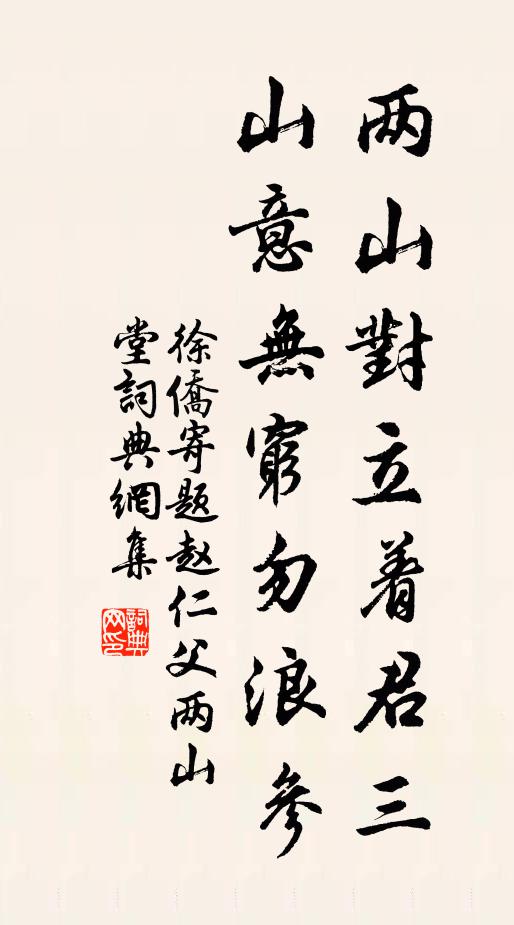 两山對立着君三
山意無窮勿浪參
徐僑寄题赵仁父两山
堂詞典網集
詞典网印